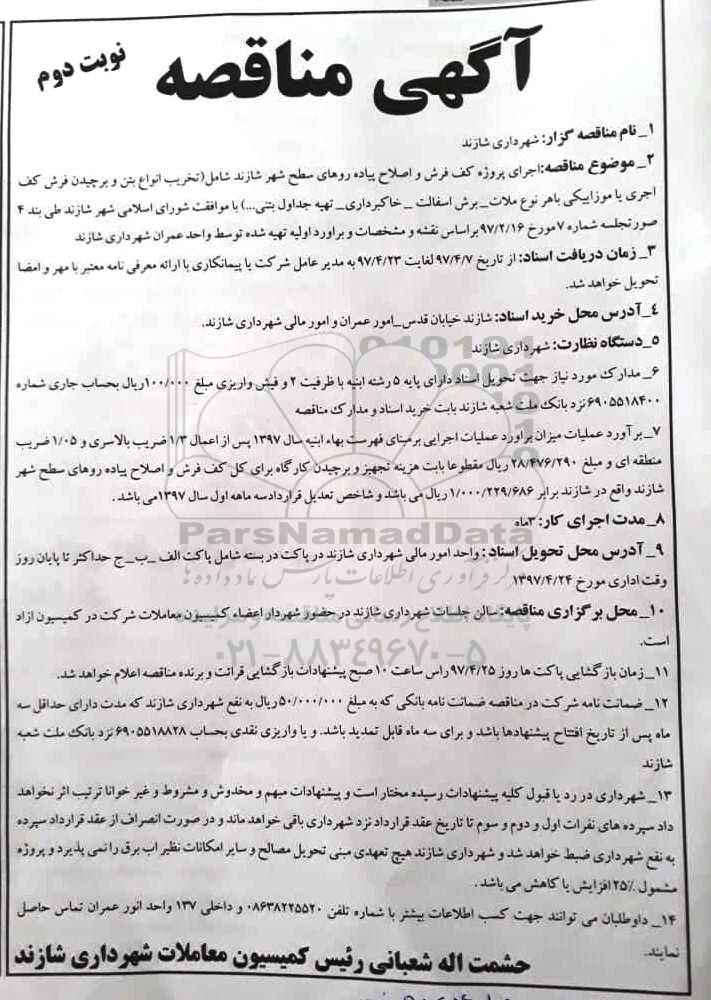 آگهی مناقصه
نوبت دوم
۱_ نام مناقصه گزار: شهرداری شازند
۲_ موضوع مناقصه:اجرای پروژه کف فرش و اصلاح پیاده روهای سطح شهر شازند شامل(تخریب انواع بتن و برچیدن فرش کف
اجری یا موزاییکی باهر نوع ملات_ برش اسفالت _ خاکبرداری_ تهیه جداول بتنی...) با موافقت شورای اسلامی شهر شازند طی بند ۴
صورتجلسه شماره ۷ مورخ ۹۷/۲/۱۶ براساس نقشه و مشخصات و براورد اولیه تهیه شده توسط واحد عمران شهرداری شازند
۳_ زمان دریافت اسناد: از تاریخ ۹۷/۴/۷ لغایت ۹۷/۴/۲۳ به مدیر عامل شرکت یا پیمانکاری با ارائه معرفی نامه معتبر با مهر و امضا
تحویل خواهد شد.
۴_ آدرس محل خرید اسناد: شازند خیابان قدس_ امور عمران و امور مالی شهرداری شازند.
۵_ دستگاه نظارت: شهرداری شازند
۶_ مدارک مورد نیاز جهت تحویل اسناد دارای پایه ۵ رشته ابنیه با ظرفیت ۲ و فیش واریزی مبلغ ۱۰۰/۰۰۰ ریال بحساب جاری شماره
۶۹۰۵۵۱۸۴۰۰ نزد بانک ملت شعبه شازند بابت خرید اسناد و مدارک مناقصه
۷_ برآورد عملیات میزان براورد عملیات اجرایی برمبنای فهرست بهاء ابنیه سال ۱۳۹۷ پس از اعمال ۱/۳ ضریب بالاسری و ۱/۰۵ ضریب
منطقه ای و مبلغ ۲۸/۴۷۶/۲۹۰ ریال مقطوعا بابت هزینه تجهیز و برچیدن کارگاه برای کل کف فرش و اصلاح پیاده روهای سطح شهر
شازند واقع در شازند برابر ۱/۰۰۰/۲۲۹/۶۸۶ ریال می باشد و شاخص تعدیل قراردادسه ماهه اول سال ۱۳۹۷ می باشد .
۸_ مدت اجرای کار: ۳ماه
۹_ آدرس محل تحویل اسناد : واحد امور مالی شهرداری شازند در پاکت در بسته شامل پاکت الف _ب_ ج حداکثر تا پایان روز
وقت اداری مورخ ۱۳۹۷/۴/۲۴
۱۰_ محل برگزاری مناقصه: سالن جلسات شهرداری شازند در حضور شهردار اعضاء کمیسیون معاملات شرکت در کمیسیون ازاد
است.
۱۱_ زمان بازگشایی پاکت ها روز ۹۷/۴/۲۵ راس ساعت ۱۰ صبح پیشنهادات بازگشایی قرائت و برنده مناقصه اعلام خواهد شد.
۱۲_ ضمانت نامه شرکت در مناقصه ضمانت نامه بانکی که به مبلغ ۵۰/۰۰۰/۰۰۰ ریال به نفع شهرداری شازند که مدت دارای حداقل سه
ماه پس از تاریخ افتتاح پیشنهادها باشد و برای سه ماه قابل تمدید باشد. و یا واریزی نقدی بحساب ۶۹۰۵۵۱۸۸۲۸ نزد بانک ملت شعبه
شازند
۱۳_ شهرداری در رد یا قبول کلیه پیشنهادات رسیده مختار است و پیشنهادات مبهم و مخدوش و مشروط و غیر خوانا ترتیب اثر نخواهد
داد سپرده های نفرات اول و دوم و سوم تا تاریخ عقد قرارداد نزد شهرداری باقی خواهد ماند و در صورت انصراف از عقد قرارداد سپرده
به نفع شهرداری ضبط خواهد شد و شهرداری شازند هیچ تعهدی مبنی تحویل مصالح و سایر امکانات نظیر اب برق را نمی پذیرد و پروژه
مشمول ۲۵٪ افزایش یا کاهش می باشد .
۱۴_ داوطلبان می توانند جهت کسب اطلاعات بیشتر با شماره تلفن ۰۸۶۳۸۲۲۵۵۲۰ و داخلی ۱۳۷ واحد انور عمران تماس حاصل
نمایند.
حشمت اله شعبانی رئیس کمیسیون معاملات شهرداری شازند
ParsNamadData
۰۲۱-۸۸۳۴۹۶۷۰-۵